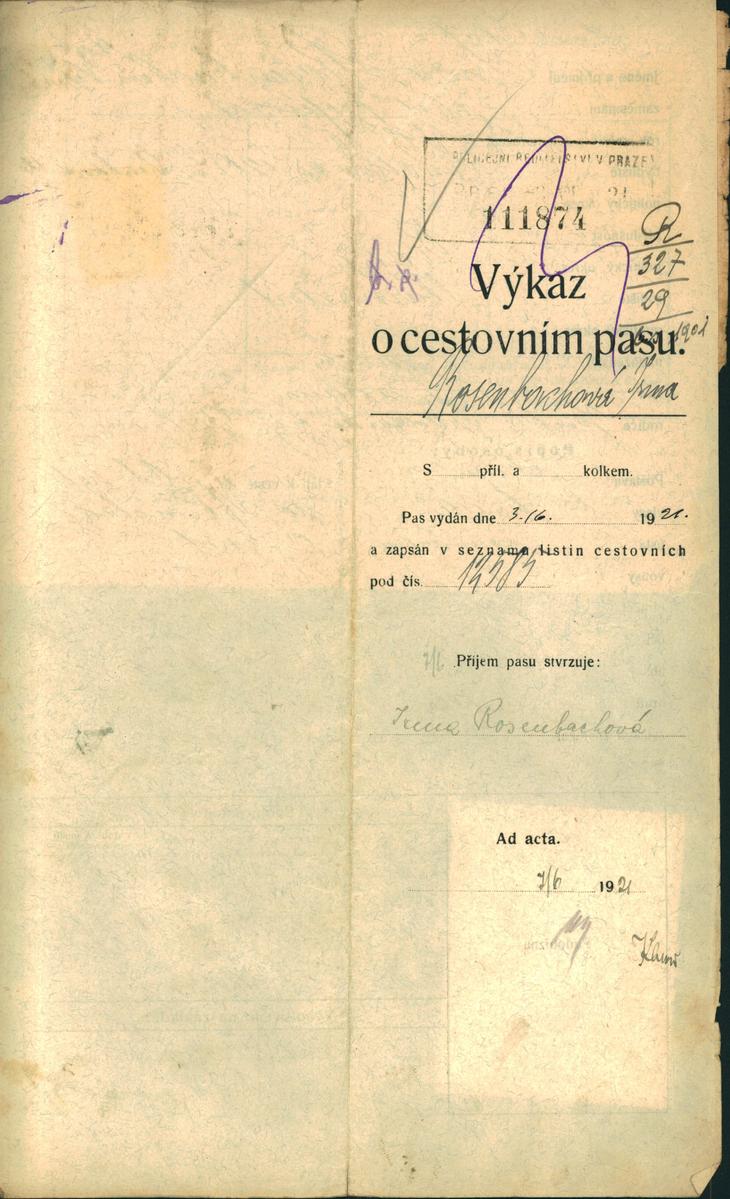 POLICEJNÍ ŘEDITELSTVÍ V PRAZE
111874
R
327
29
Výkaz
o cestovním pasu.
Rosenbachová Irma
S příl. a kolkem.
Pas vydán dne 3./6. 1921.
a zapsán v seznamu listin cestovních
pod čís.
7/6 Příjem pasu stvrzuje:
Irma Rosenbachová
Ad acta.
7/6 1921